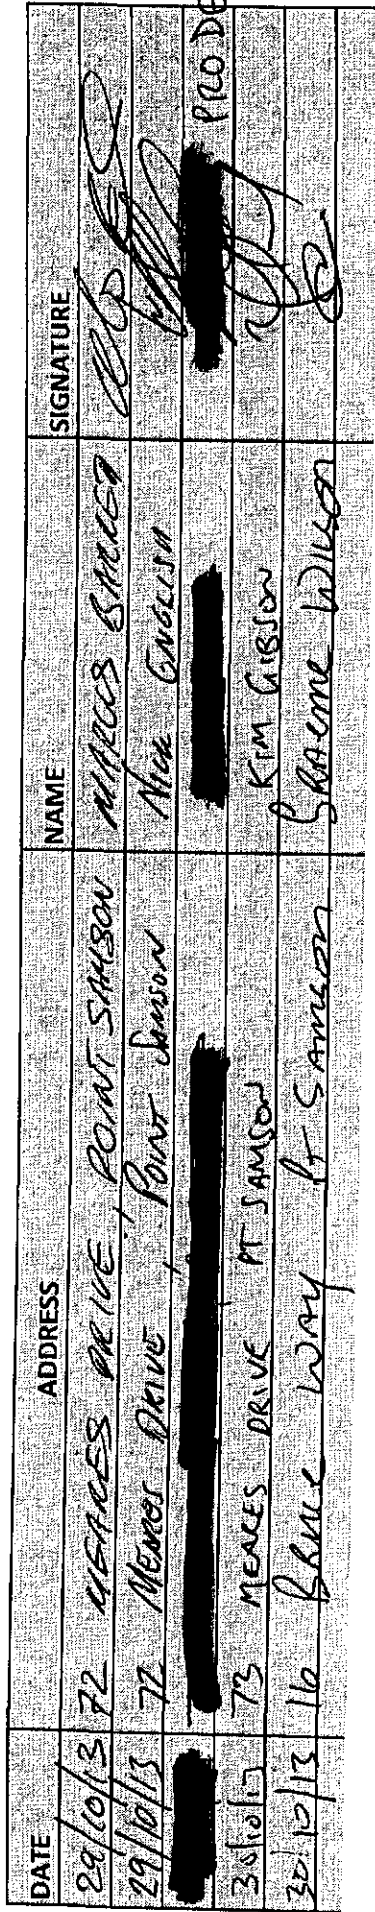 DATE ADDRESS NAME SIGNATURE
29/10/13 72 MEARES DRIVE, POINT SAMSON MARCUS
29/10/13 72 Meares Drive, Point Samson Nick English
PRO DE
30/10/13 73 MEARES DRIVE PT SAMSON KIM GIBSON
30/10/13 16 Way Pt SAMSON Graeme Wilson